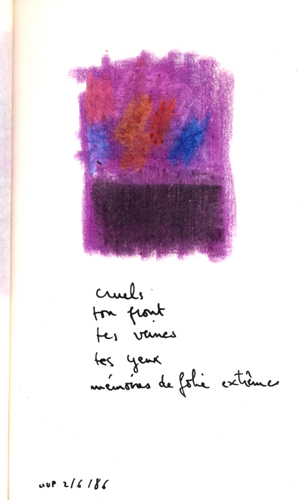 cruels
ton front
tes veines
tes yeux
mémoires de folie extrêmes
2/6/86